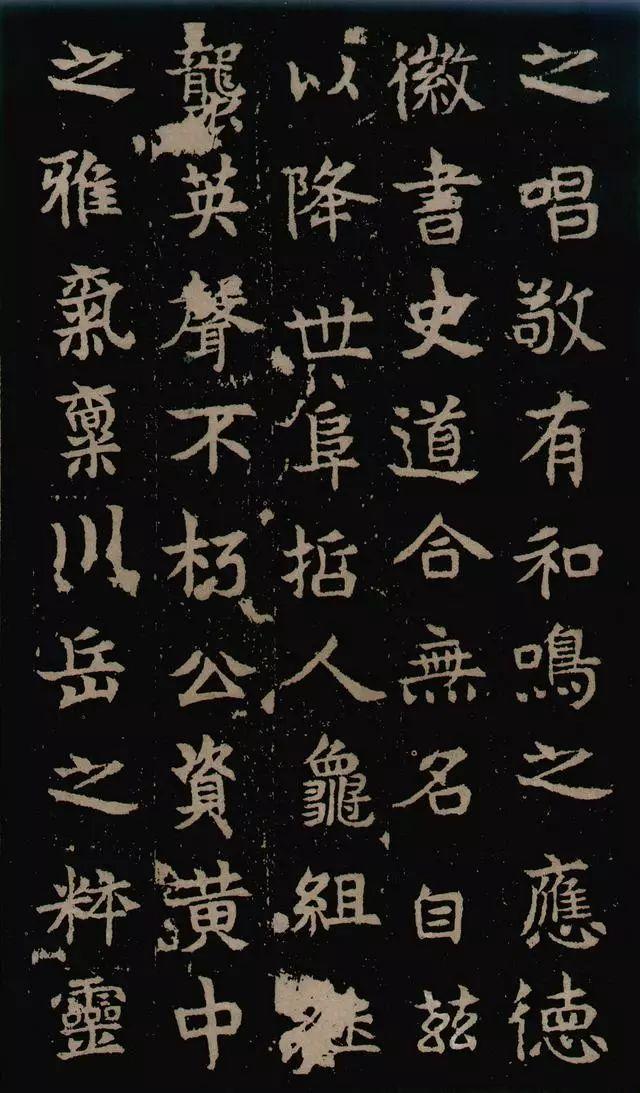 之唱敬有和鳴之應德
徽書史道合無名自兹
以降世阜哲人龜組継
襲英聲不朽公資黄中
之雅氣稟川岳之粋靈